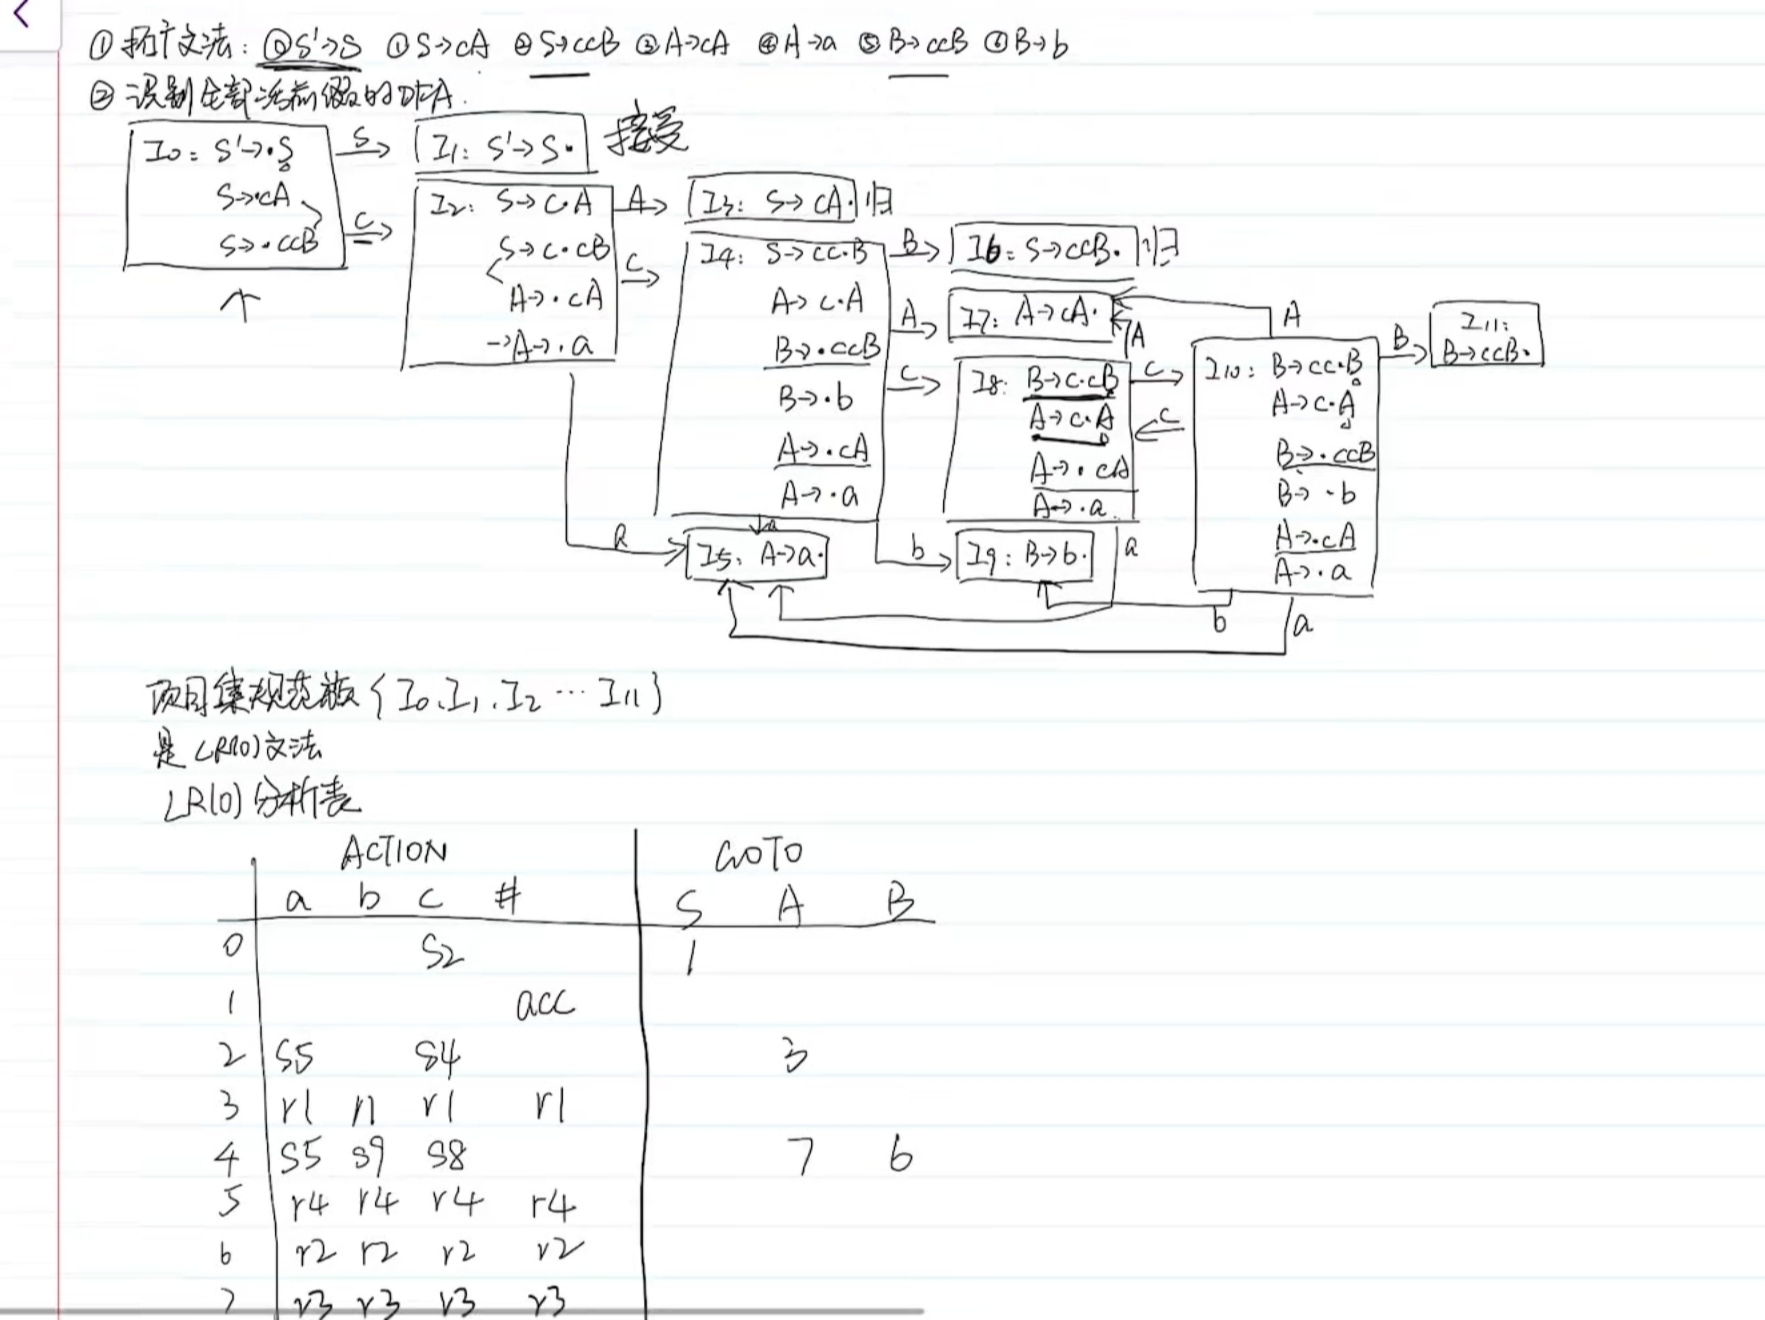 ① 拓广文法: ⓪S'→S ①S→cA ②S→ccB ③A→cA ④A→a ⑤B→ccB ⑥B→b
② 识别全部活前缀的DFA.
I0: S'→·S
S→·cA
S→·ccB
S
c
I1: S'→S·
接受
I2: S→c·A
S→c·cB
A→·cA
→A→·a
A
c
a
I3: S→cA·
归
I4: S→cc·B
A→c·A
B→·ccB
B→·b
A→·cA
A→·a
B
A
c
b
a
I5: A→a·
I6: S→ccB·
归
I7: A→cA·
A
A
I8: B→c·cB
A→c·A
A→·cA
A→·a
c
c
a
I9: B→b·
I10: B→cc·B
A→c·A
B→·ccB
B→·b
A→·cA
A→·a
B
b
a
I11:
B→ccB·
项目集规范族{I0、I1、I2 … I11}
是LR(0)文法
LR(0)分析表
ACTION GOTO
a b c # S A B
0 S2 1
1 acc
2 S5 S4 3
3 r1 r1 r1 r1
4 S5 S9 S8 7 6
5 r4 r4 r4 r4
6 r2 r2 r2 r2
7 r3 r3 r3 r3